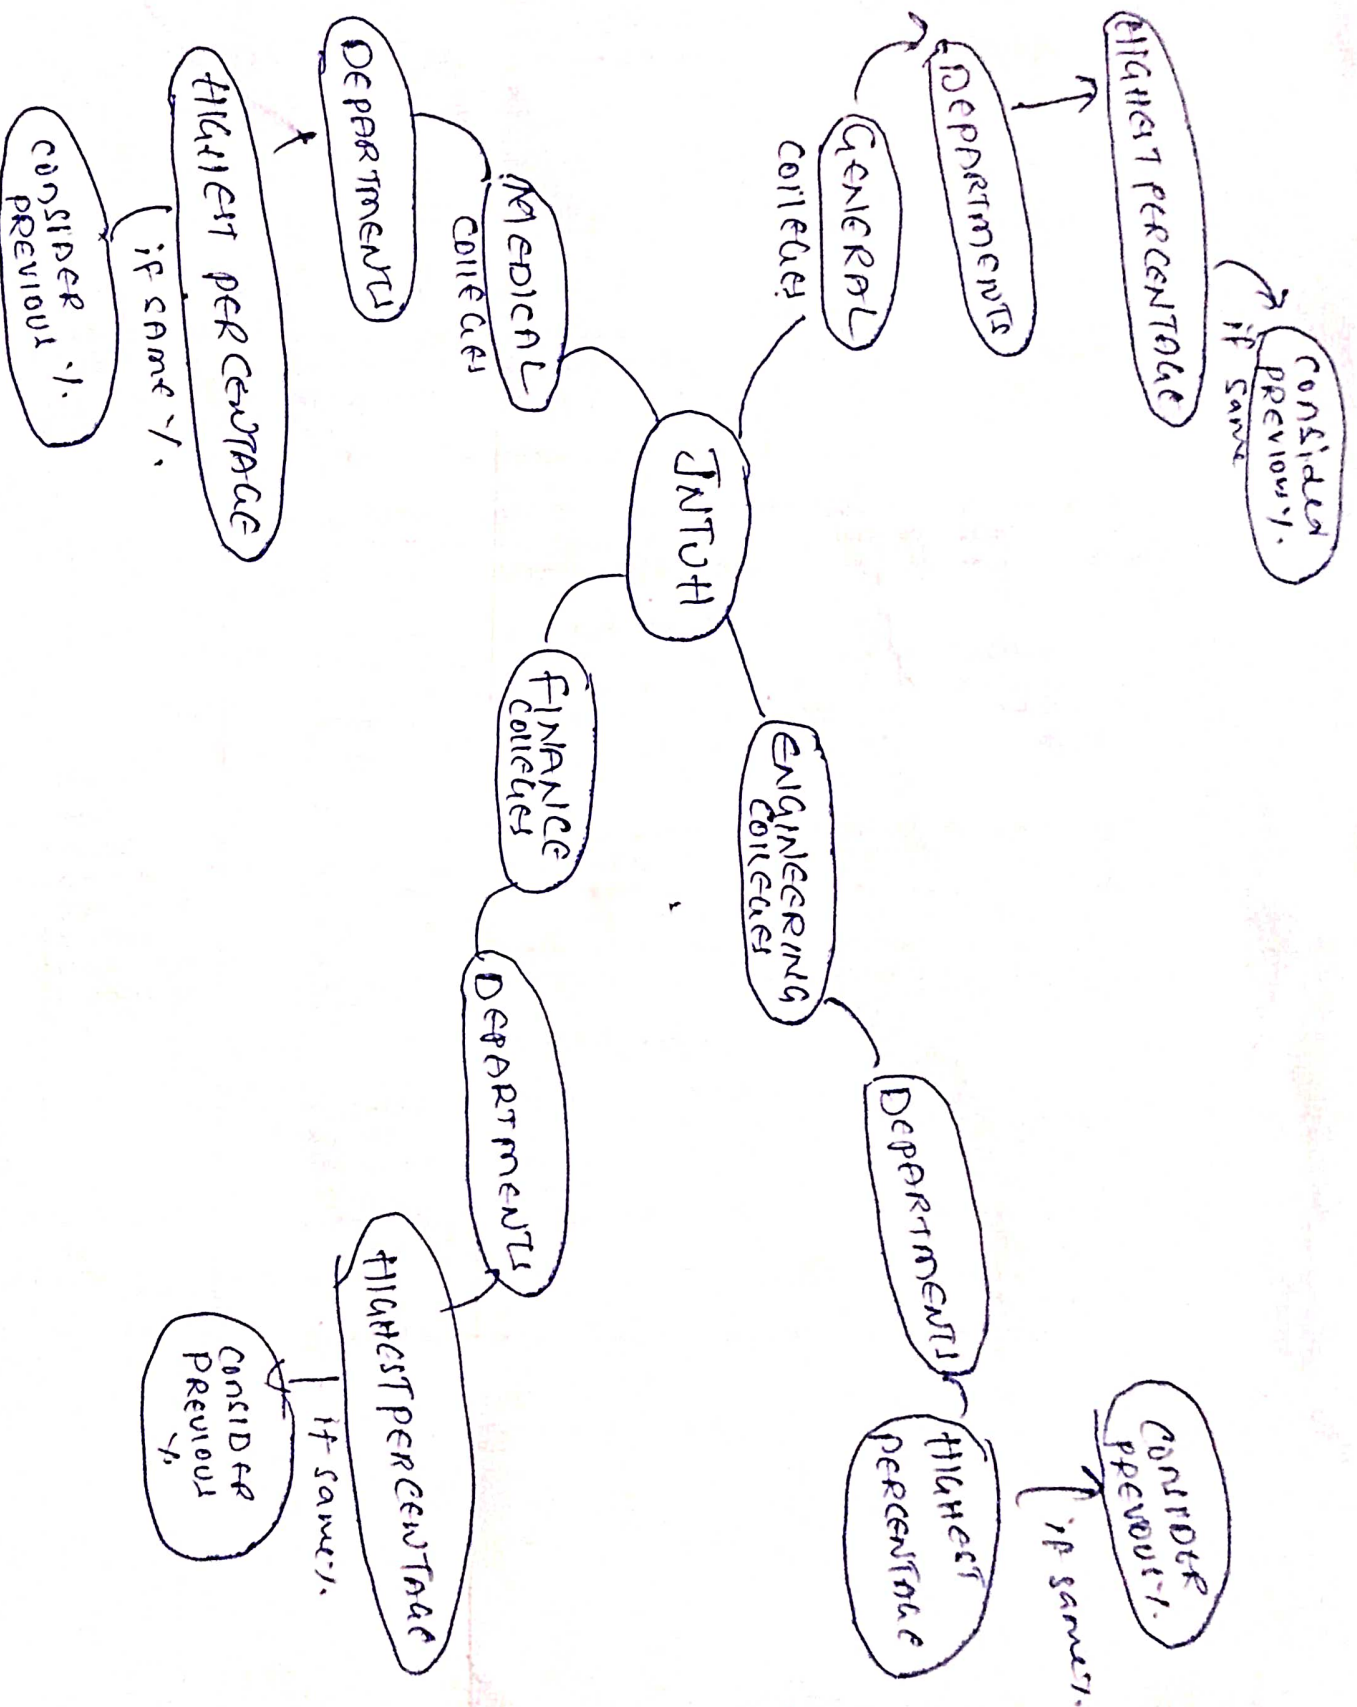 JNTUH
GENERAL
COllEGES
DEPARTMENTS
HIGHEST PERCENTAGE
if same
Considered
PREVIOUS %.
ENGINEERING
COllEGES
DEPARTMENTS
HIGHEST
PERCENTAGE
if same %.
CONSIDER
PREVIOUS %.
MEDICAL
COllEGES
DEPARTMENTS
HIGHEST PERCENTAGE
if same %.
CONSIDER
PREVIOUS %.
FINANCE
COllEGES
DEPARTMENTS
HIGHEST PERCENTAGE
if same %.
CONSIDER
PREVIOUS
%.